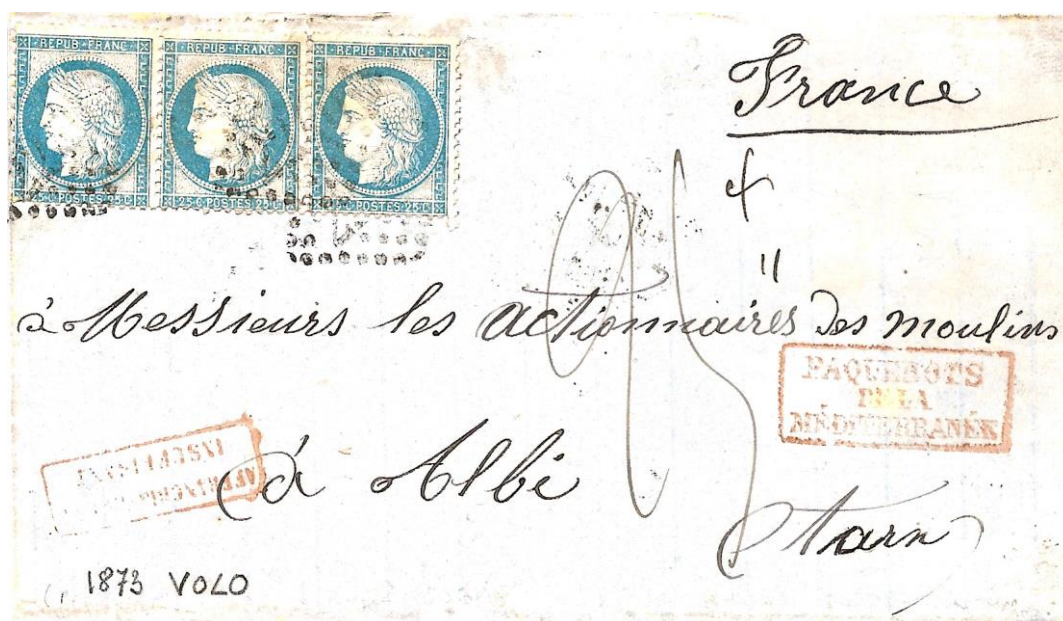 REPUB·FRANC REPUB·FRANC REPUB·FRANC
25·C·POSTES·25·C 25·C·POSTES·25·C POSTES·25·C
France
à Messieurs les actionnaires des moulins
PAQUEBOTS
DE LA
MÉDITERRANÉE
AFFRANCHISSEMENT
INSUFFISANT
à Albi
Tarn
1873 VOLO